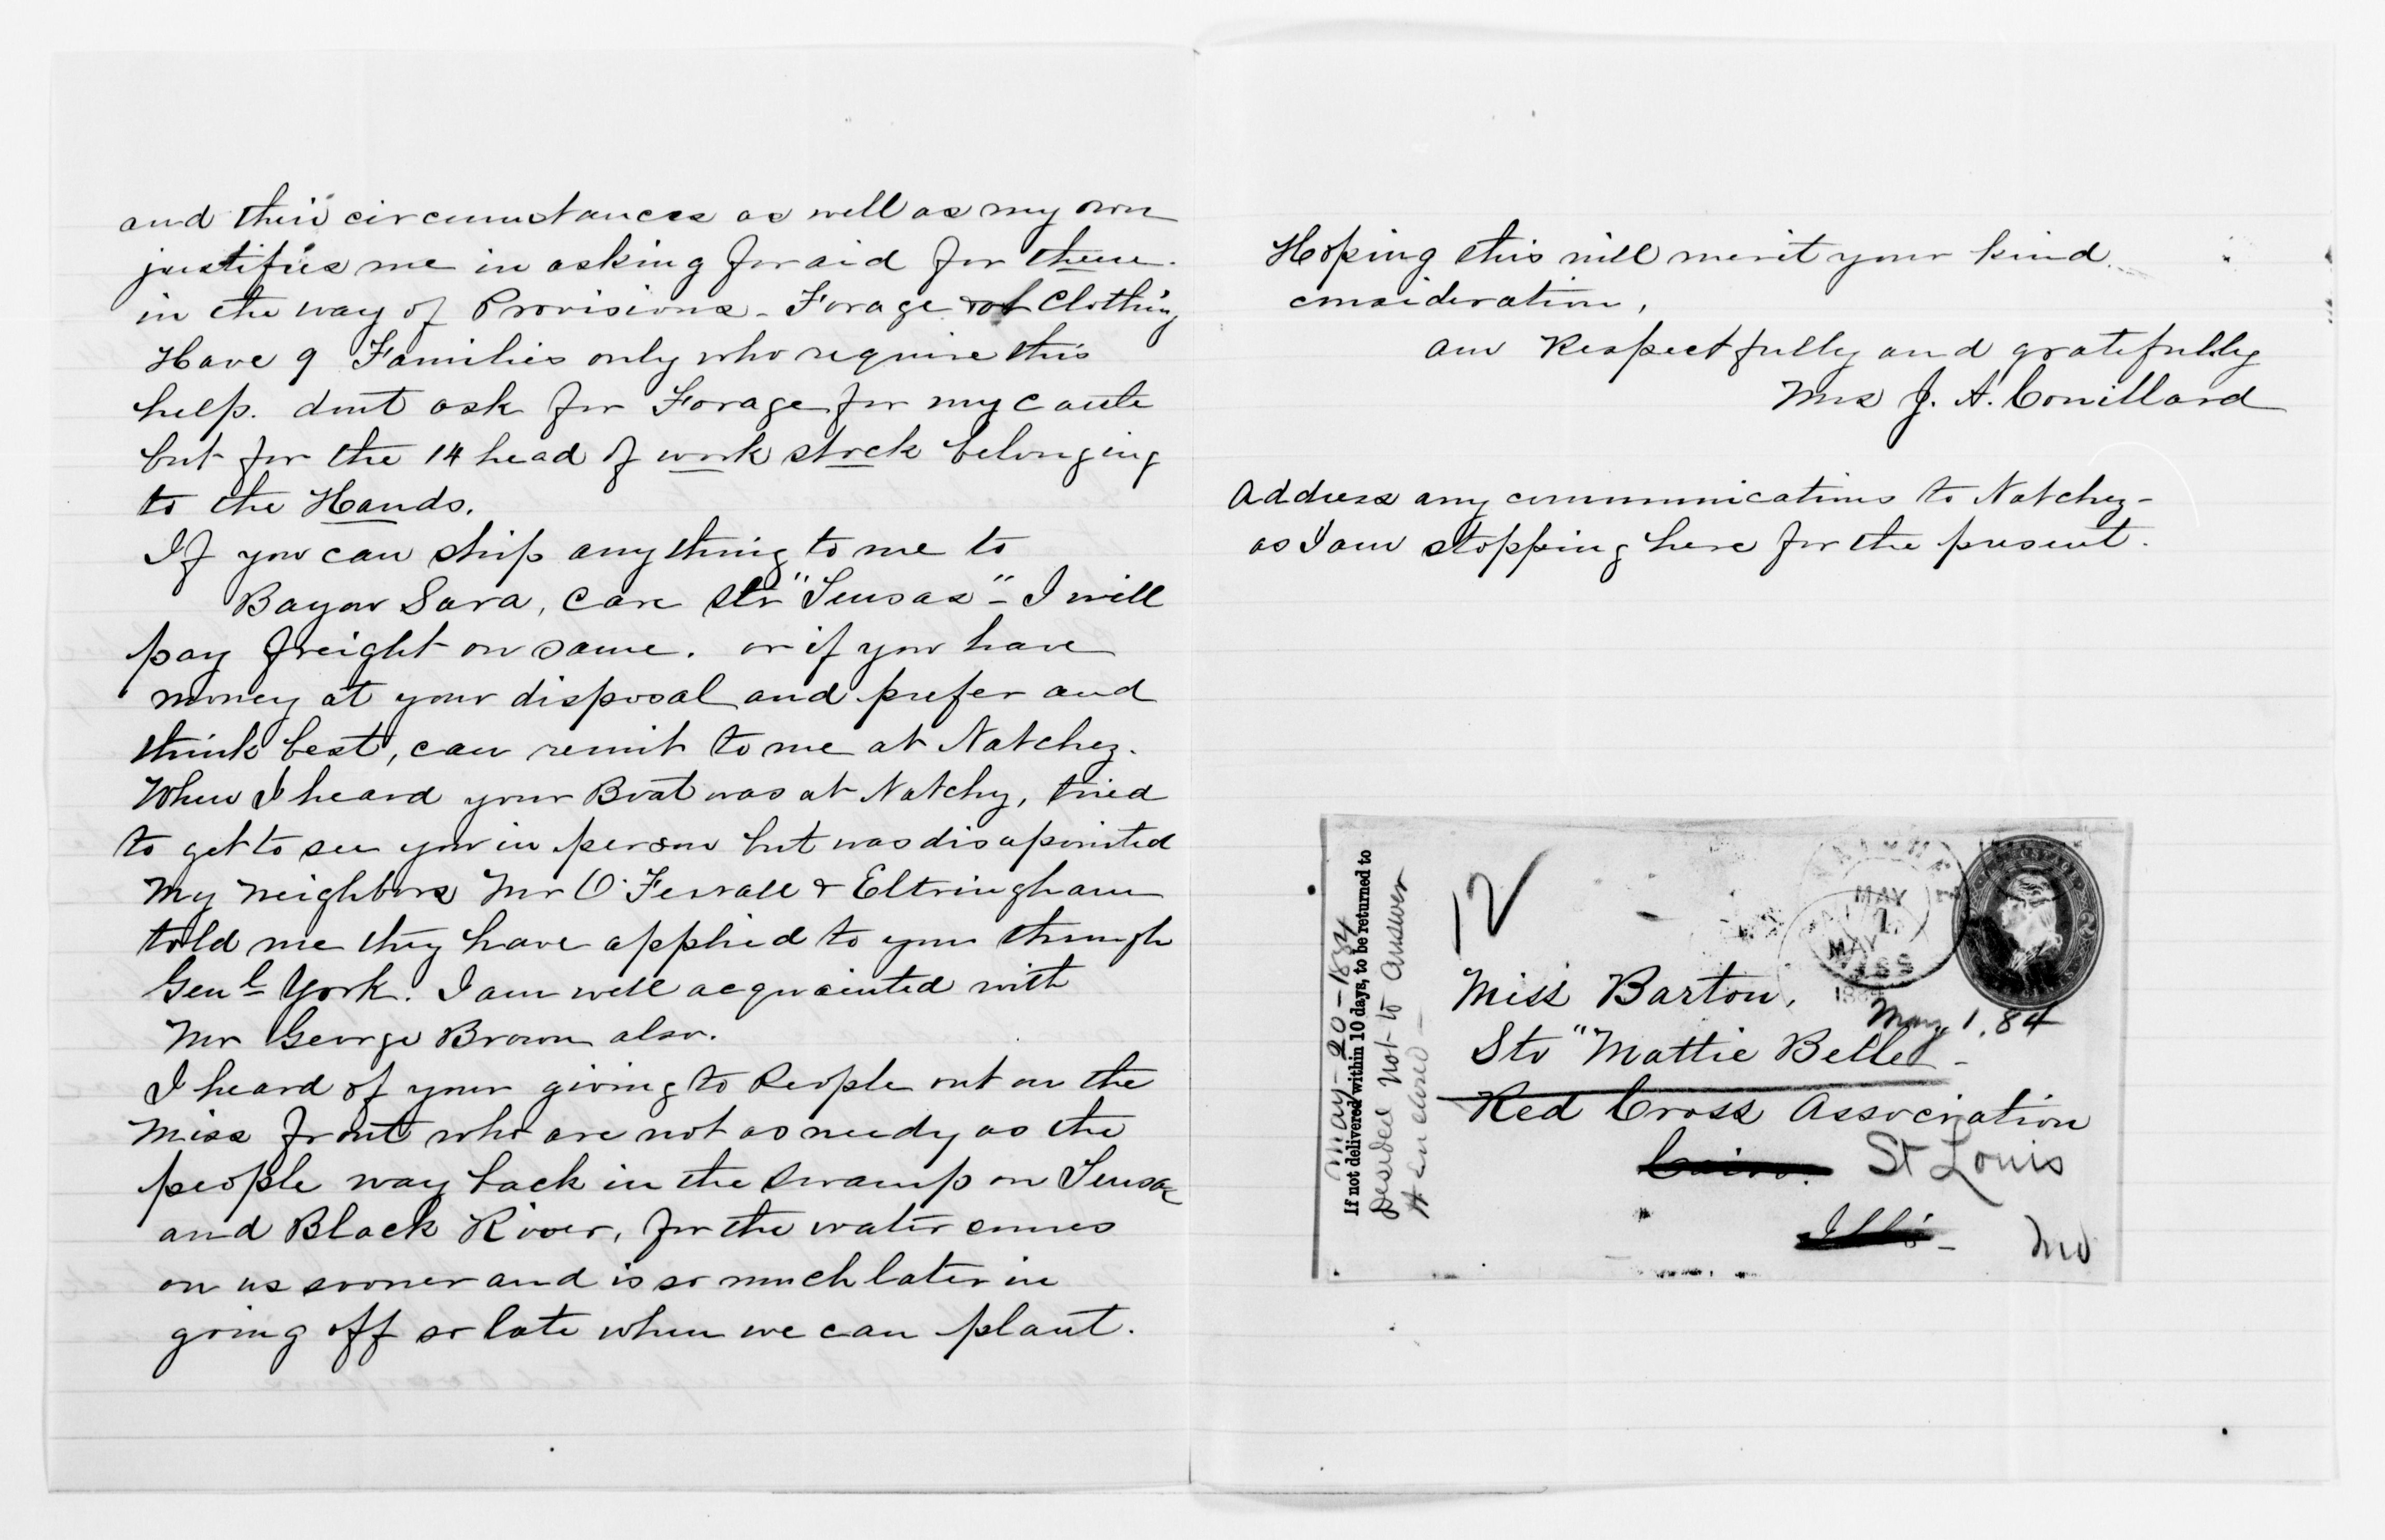 and their circumstances as well as my own
justifies me in asking for aid for them.
in the way of Provisions - Forage & Clothing
Have 9 Families only who require this
help. dont ask for Forage for my cattle
but for the 14 head of work stock belonging
to the Hands.
If you can ship any thing to me to
Bayou Sara, care Str "Tensas" - I will
pay freight on same. or if you have
money at your disposal and prefer and
think best, can remit to me at Natchez.
When I heard your Boat was at Natchez, tried
to get to see you in person but was disapointed
My Neighbors Mr O'Ferrall & Eltringham
told me they have applied to you through
Genl York. I am well acquainted with
Mr George Brown also.
I heard of your giving to People out on the
Miss front who are not as needy as the
people way back in the swamp on Tensas
and Black River, for the water comes
on us sooner and is so much later in
going off so late when we can plant.
Hoping this will merit your kind
consideration,
am Respectfully and gratefully
Mrs J. A. Couillard
Address any communications to Natchez -
as I am stopping here for the present.
May - 20 - 1884
If not delivered within 10 days, to be returned to
Decided not to answer
12
MAY
1
MAY
MISS
Miss Barton,
May 1. 84
Str "Mattie Belle" -
Red Cross Association
Cairo. St Louis
Ills - Mo